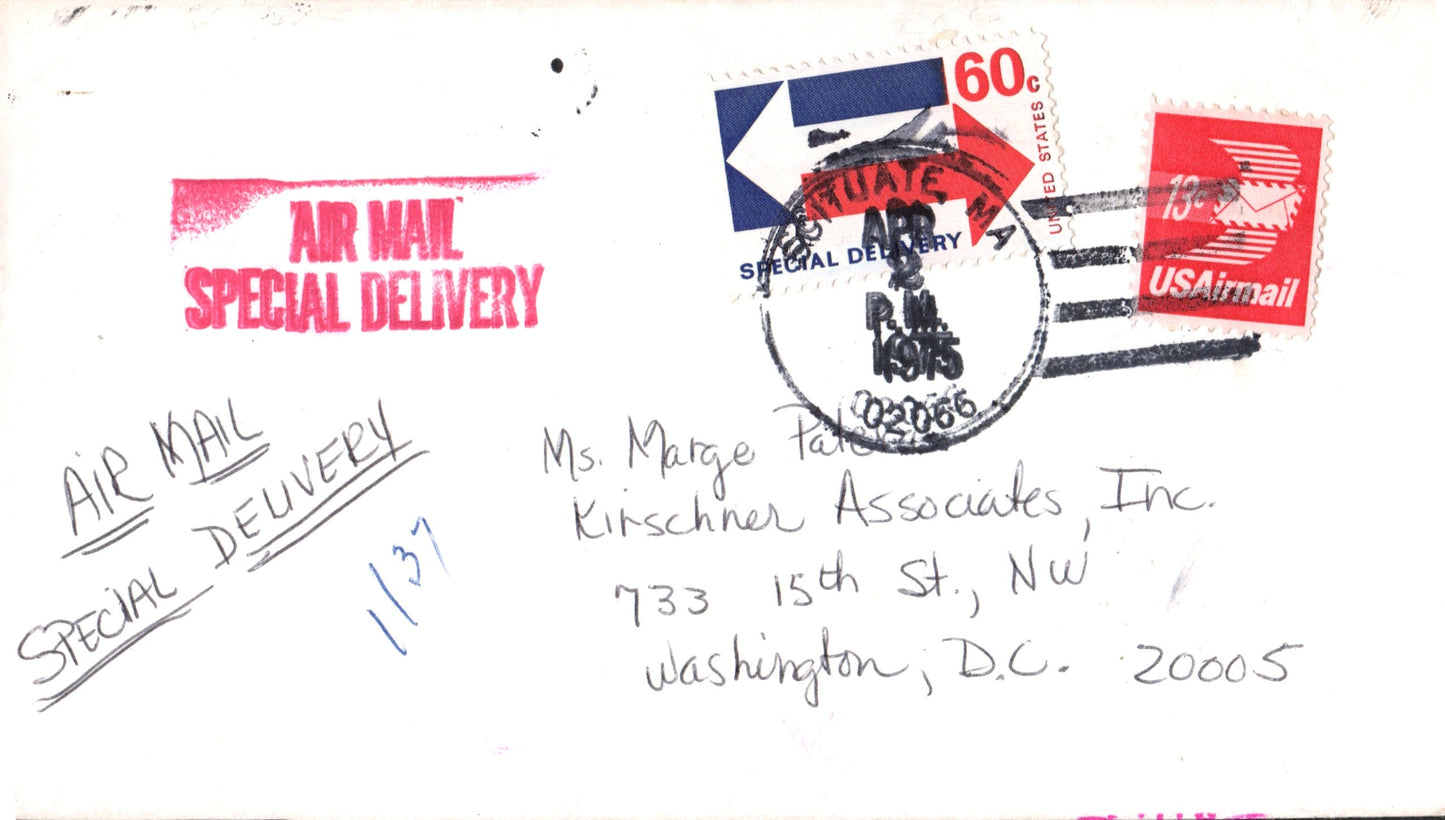 60c
UNITED STATES
SPECIAL DELIVERY
13c
USAirmail
SCITUATE, MA
APR
2
P.M.
1975
02066
AIR MAIL
SPECIAL DELIVERY
AIR MAIL
SPECIAL DELIVERY
1/37
Ms. Marge
Kirschner Associates, Inc.
733 15th St., NW
Washington, D.C. 20005